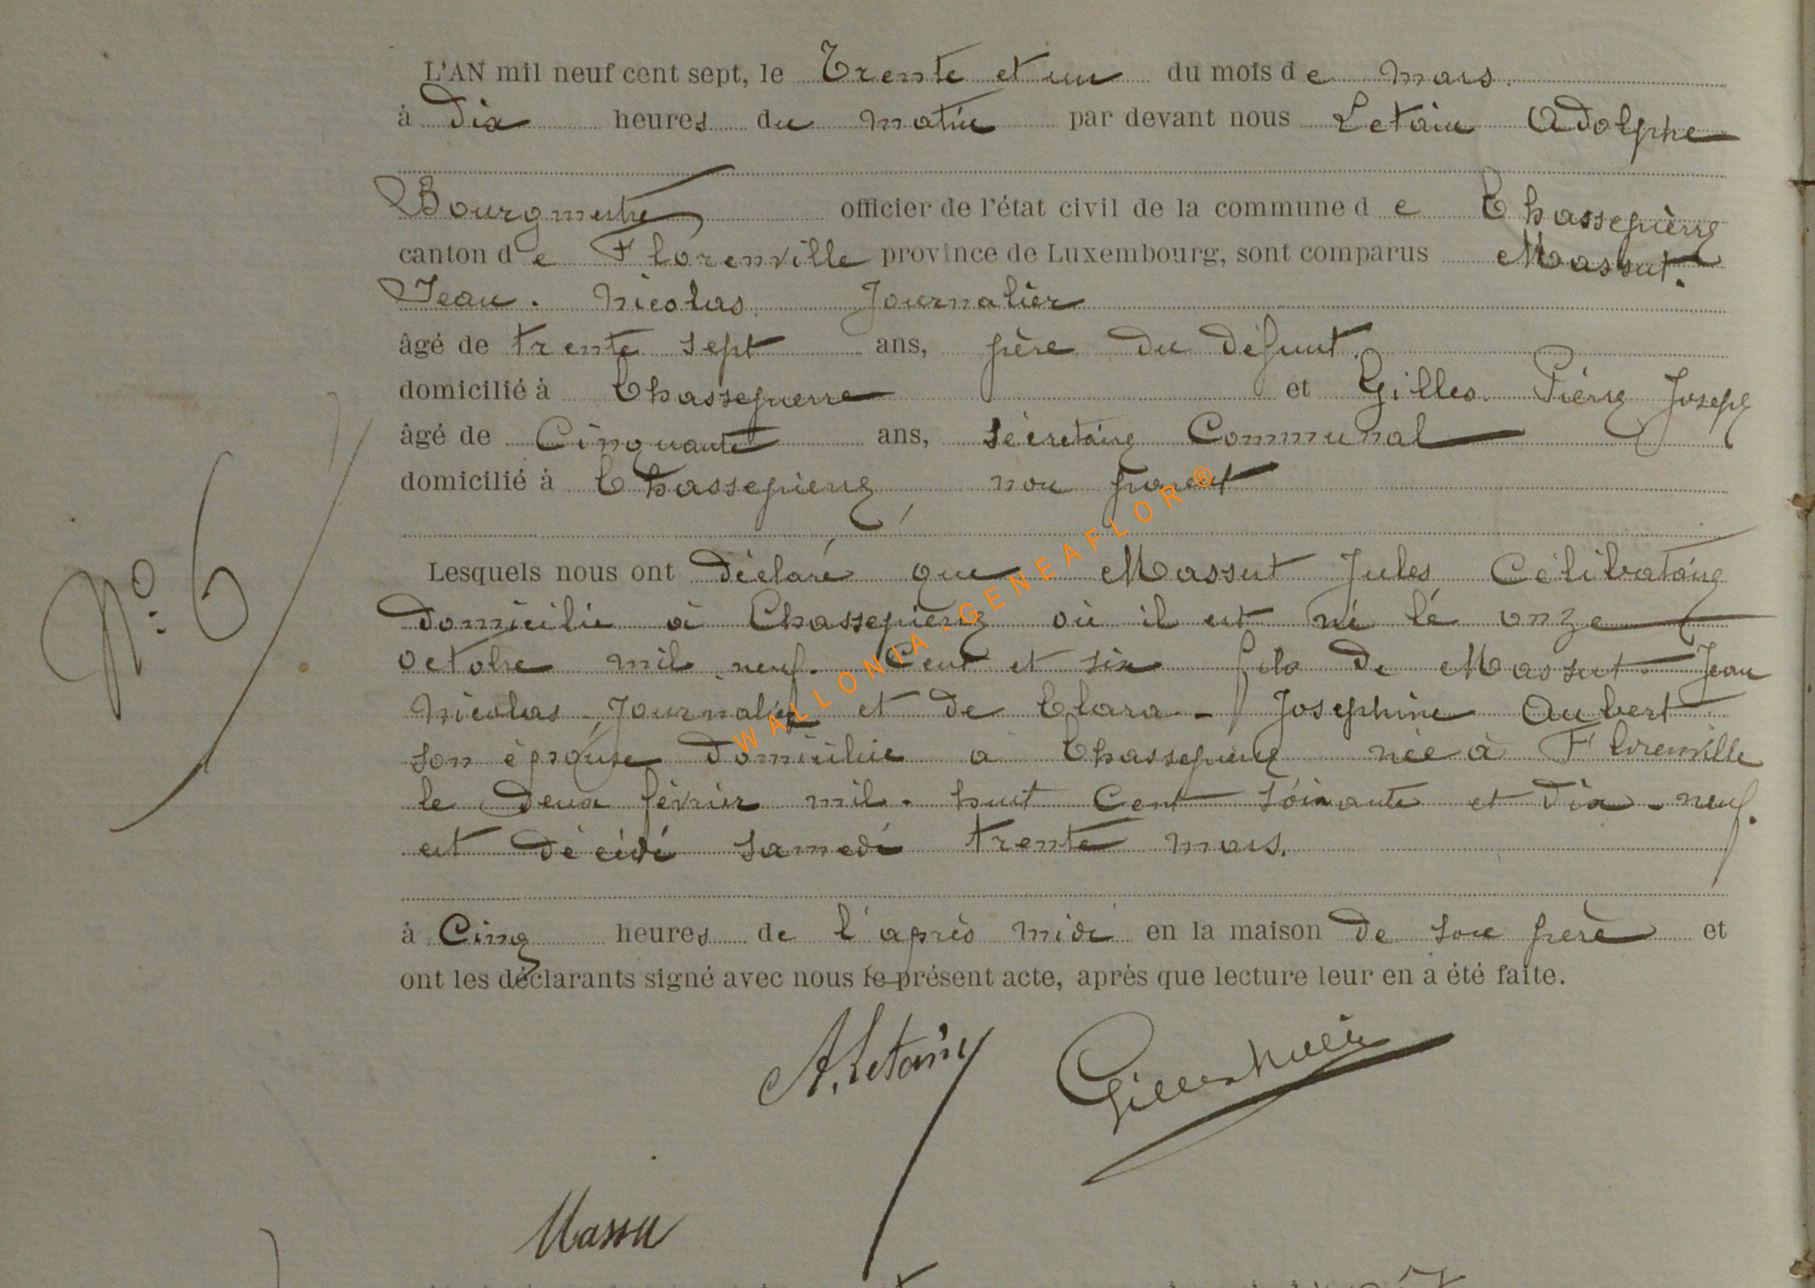 L'AN mil neuf cent sept, le Trente et un du mois de mars.
à Dix heures du matin par devant nous Letain Adolphe
Bourgmestre officier de l'état civil de la commune de Chassepierre
canton de Florenville province de Luxembourg, sont comparus Massut.
Jean. Nicolas Journalier
âgé de trente sept ans, père du défunt.
domicilié à Chassepierre et Gilles. Pierre Joseph
âgé de Cinquante ans, sécretaire Communal
domicilié à Chassepierre, non parent
N° 6
Lesquels nous ont déclaré que Massut Jules Célibataire
domicilié à Chassepierre où il est né lé onze
octobre mil neuf. Cent et six fils de Massut Jean
Nicolas Journalier et de Clara - Joséphine Aubert
son épouse domiciliée a Chassepierre née à Florenville
le deux février mil. huit Cent soixante et dix-neuf.
est décédé samedi trente mars.
à Cinq heures de l'après midi en la maison de son père et
ont les déclarants signé avec nous le présent acte, après que lecture leur en a été faite.
A. Letain Gilles
Massu
WALLONIA.GENEAFLOR®